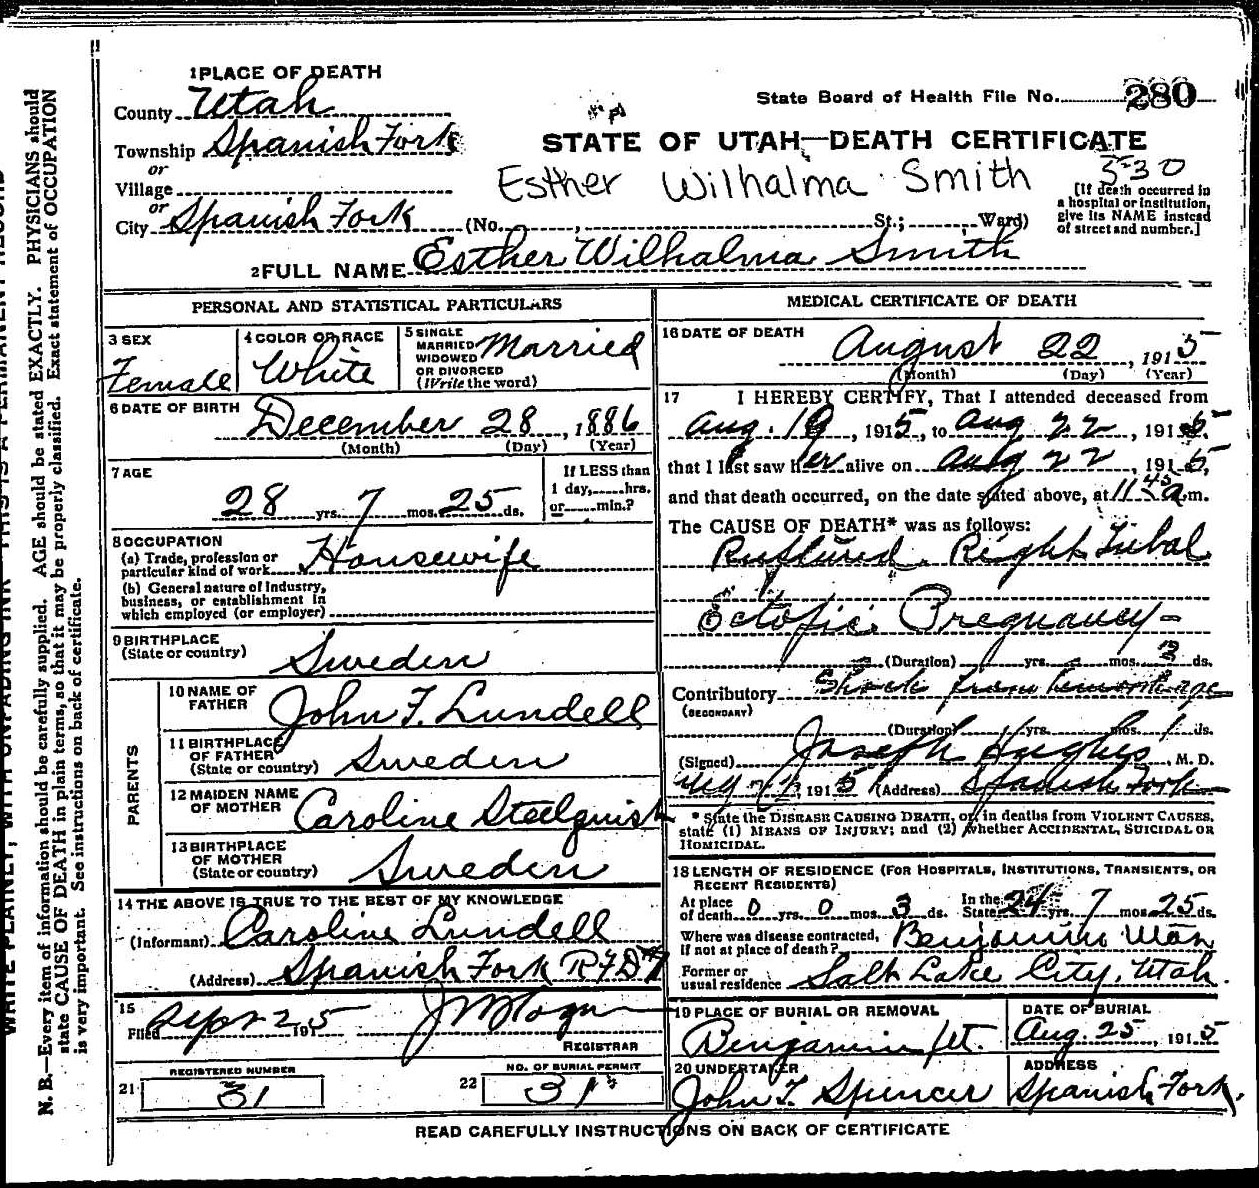 1 PLACE OF DEATH
County Utah
State Board of Health File No. 280
Township Spanish Fork
STATE OF UTAH—DEATH CERTIFICATE
or
Village
Esther Wilhalma Smith
530
[If death occurred in a hospital or institution, give its NAME instead of street and number.]
or
City Spanish Fork (No. , St.; Ward)
2 FULL NAME Esther Wilhalma Smith
PERSONAL AND STATISTICAL PARTICULARS
3 SEX
Female
4 COLOR OR RACE
White
5 SINGLE MARRIED WIDOWED OR DIVORCED (Write the word)
Married
6 DATE OF BIRTH
December 28, 1886
(Month) (Day) (Year)
7 AGE
28 yrs. 7 mos. 25 ds.
If LESS than 1 day, hrs. or min.?
8 OCCUPATION
(a) Trade, profession or particular kind of work Housewife
(b) General nature of Industry, business, or establishment in which employed (or employer)
9 BIRTHPLACE
(State or country) Sweden
PARENTS
10 NAME OF FATHER John F. Lundell
11 BIRTHPLACE OF FATHER (State or country) Sweden
12 MAIDEN NAME OF MOTHER Caroline Steelquist
13 BIRTHPLACE OF MOTHER (State or country) Sweden
14 THE ABOVE IS TRUE TO THE BEST OF MY KNOWLEDGE
(Informant) Caroline Lundell
(Address) Spanish Fork RFD #1
15
Filed 2, 1915
REGISTRAR
21 REGISTERED NUMBER 31
22 NO. OF BURIAL PERMIT 31
MEDICAL CERTIFICATE OF DEATH
16 DATE OF DEATH
August 22, 1915
(Month) (Day) (Year)
17 I HEREBY CERTIFY, That I attended deceased from
Aug. 19, 1915, to Aug 22, 1915.
that I last saw her alive on Aug 22, 1915,
and that death occurred, on the date stated above, at 11 45 a.m.
The CAUSE OF DEATH* was as follows:
Ruptured Right Tubal
Ectopic Pregnancy -
(Duration) - yrs. - mos. 3 ds.
Contributory Shock from hemorrhage
(SECONDARY)
(Duration) yrs. mos. 1 ds.
(Signed) Joseph Hughes, M. D.
1915 (Address) Spanish Fork
* State the DISEASE CAUSING DEATH, or, in deaths from VIOLENT CAUSES, state (1) MEANS OF INJURY; and (2) whether ACCIDENTAL, SUICIDAL OR HOMICIDAL.
18 LENGTH OF RESIDENCE (FOR HOSPITALS, INSTITUTIONS, TRANSIENTS, OR RECENT RESIDENTS)
At place of death 0 yrs. 0 mos. 3 ds. In the State 24 yrs. 7 mos. 25 ds.
Where was disease contracted, if not at place of death? Benjamin Utah
Former or usual residence Salt Lake City, Utah.
19 PLACE OF BURIAL OR REMOVAL
Benjamin, Ut.
DATE OF BURIAL
Aug. 25, 1915
20 UNDERTAKER
John T. Spencer
ADDRESS
Spanish Fork.
READ CAREFULLY INSTRUCTIONS ON BACK OF CERTIFICATE
N. B.—Every item of information should be carefully supplied. AGE should be stated EXACTLY. PHYSICIANS should
state CAUSE OF DEATH in plain terms, so that it may be properly classified. Exact statement of OCCUPATION
is very important. See instructions on back of certificate.
WRITE PLAINLY, WITH UNFADING INK—THIS IS A PERMANENT RECORD